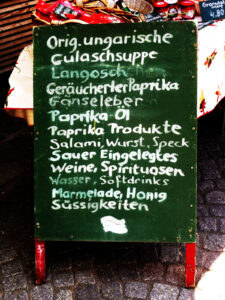 Orig. ungarische
Gulaschsuppe
Langosch
Geräucherter Paprika
Gänseleber
Paprika-Öl
Paprika Produkte
Salami, Wurst, Speck
Sauer Eingelegtes
Weine, Spirituosen
Wasser, Softdrinks
Marmelade, Honig
Süssigkeiten
4,80